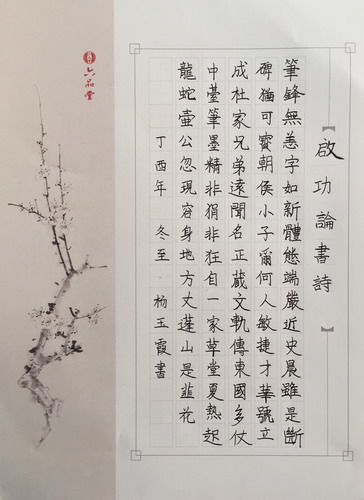 啟功論書詩
筆鋒無恙字如新體態端嚴近史晨雖是斷
碑猶可寶朝侯小子爾何人敏捷才華號立
成杜家兄弟遠聞名正藏文軌傳東國多仗
中臺筆墨精非狷非狂自一家草堂夏熱起
龍蛇壺公忽現容身地方丈蓬山是韭花
丁酉年 冬至 楊玉霞書
六品堂